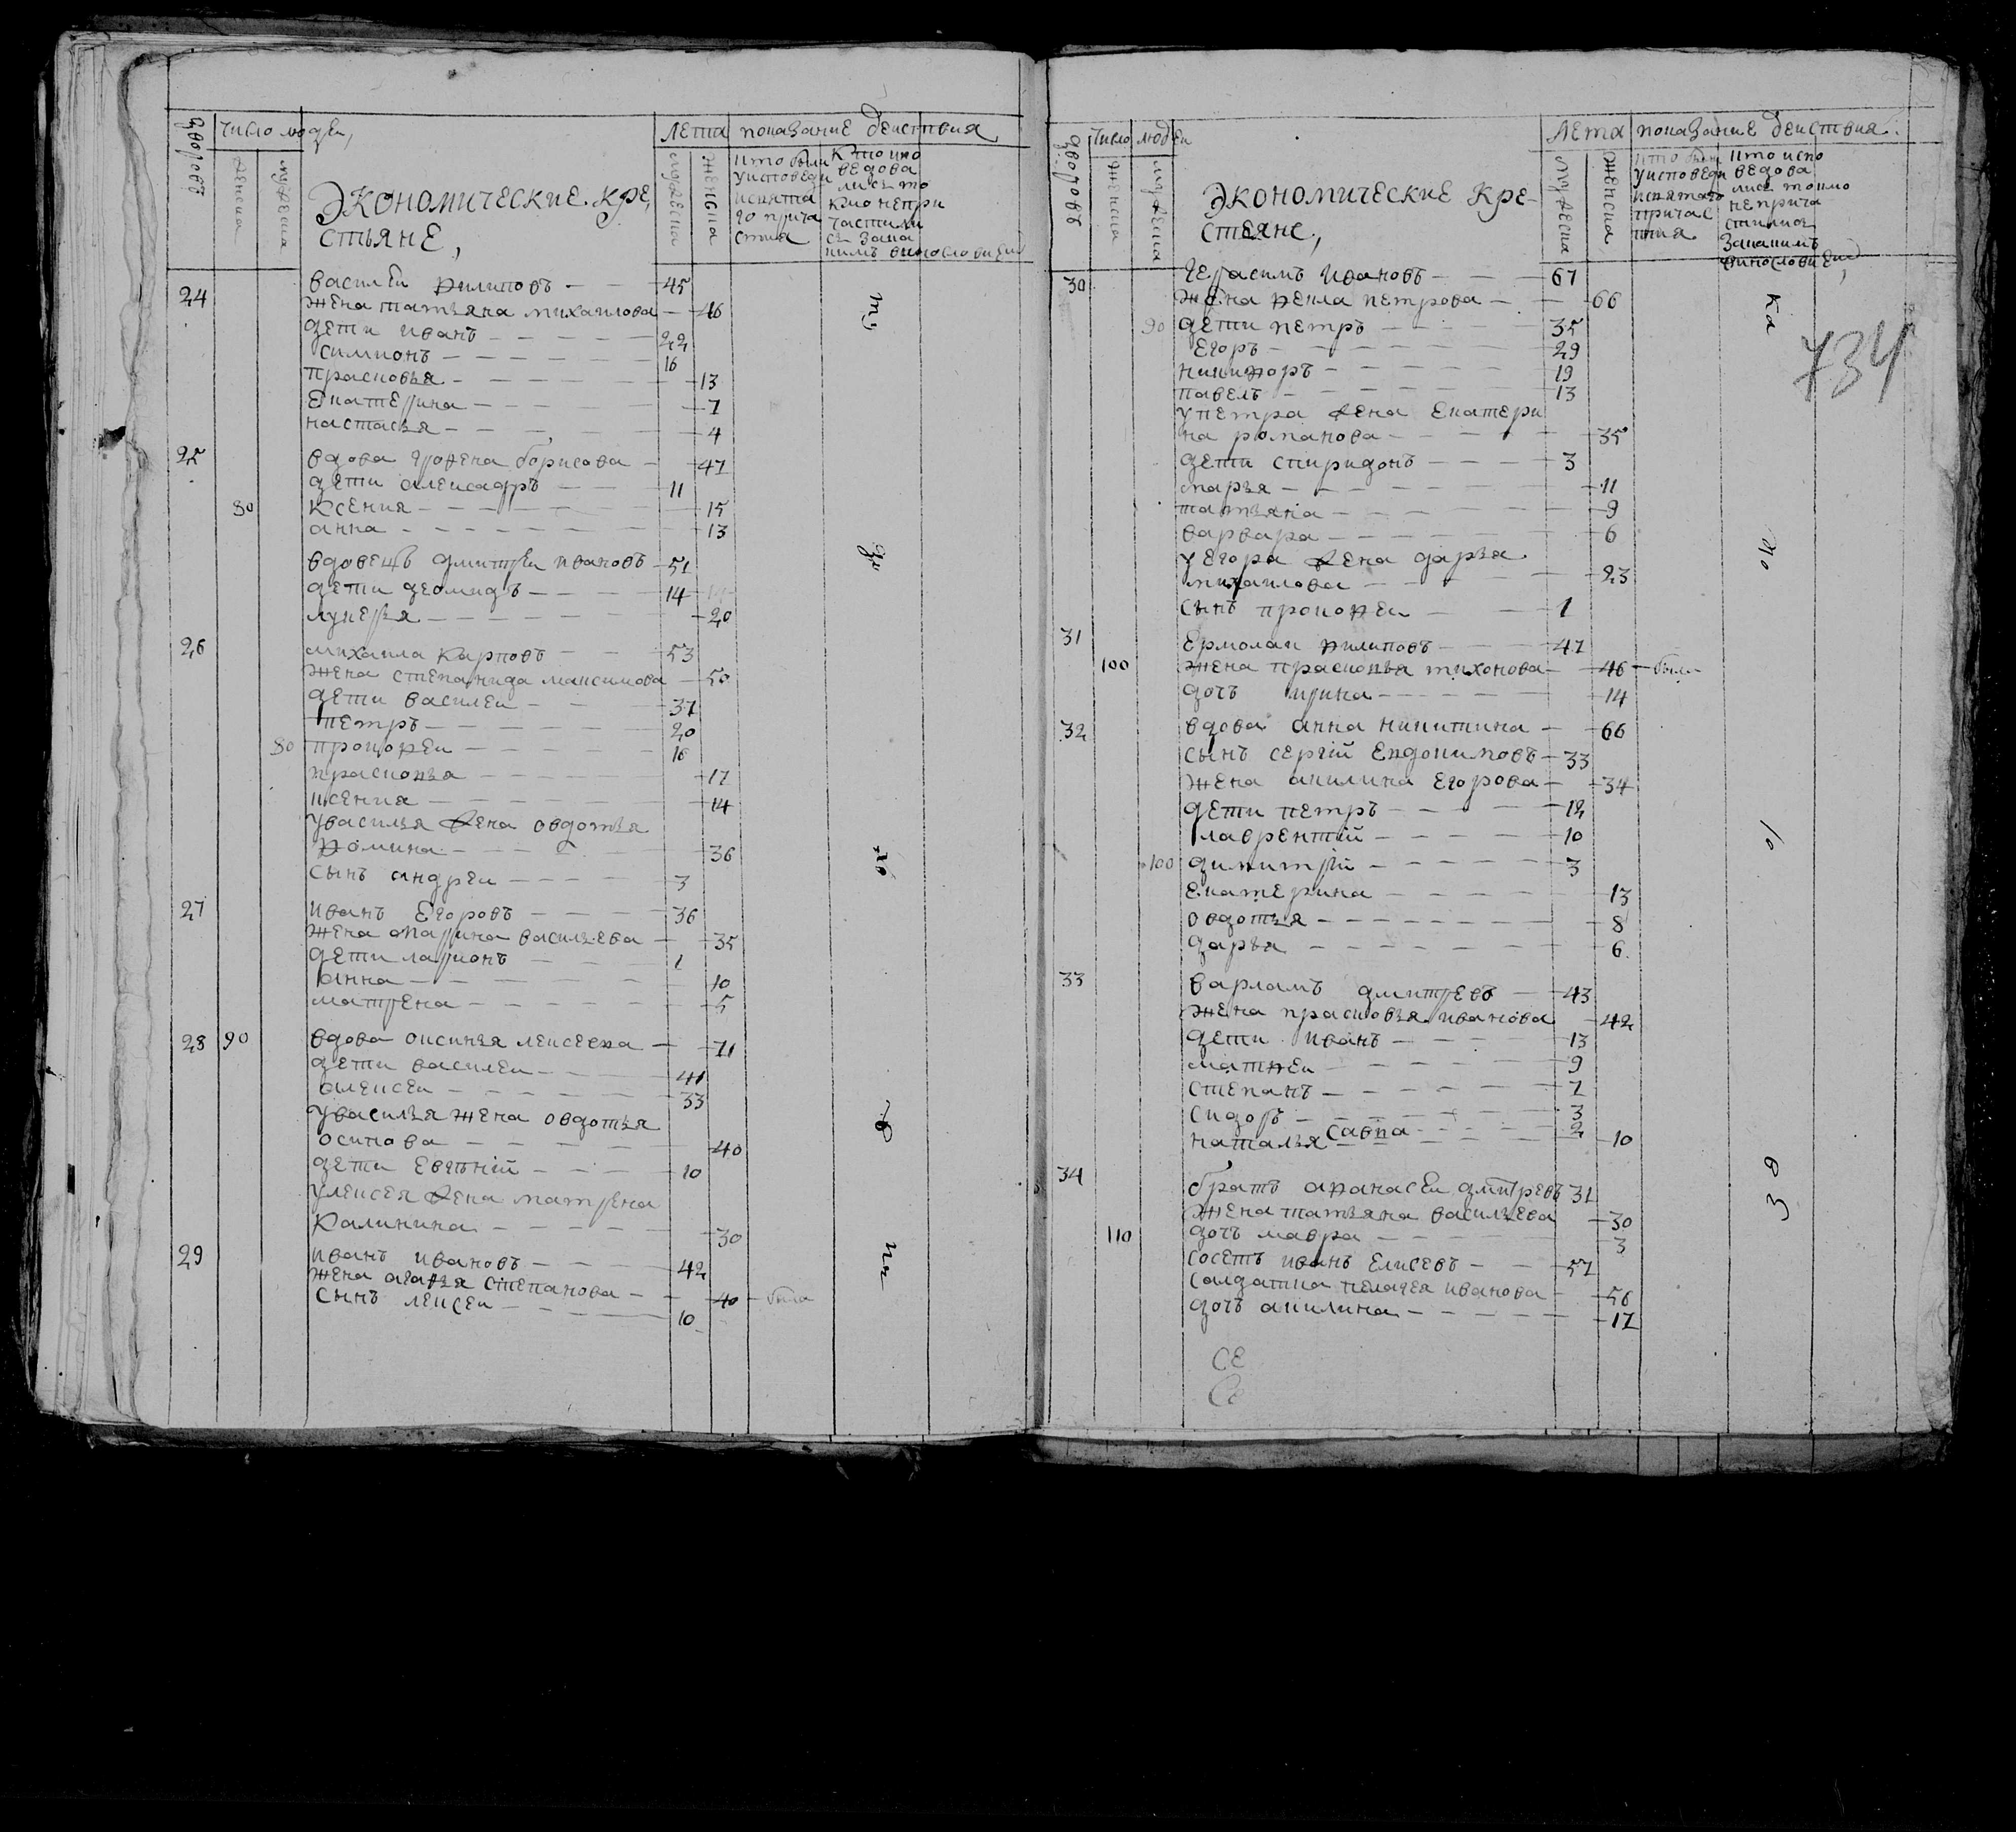 дворовъ число людеи, лета показание деиствия
женска мужеска мужеска женска
кто были у исповеди и святаго причастия
кто исповедовались токмо непричастились заκакимъ винословиемъ
ЭКОНОМИЧЕСКИЕ КРЕ,
СТЬЯНЕ,
24 василеи филиповъ 45
жена татьяна михаилова 46
дети иванъ 22
симионъ 16
прасковья 13
екатерина 7
настасья 4
25 вдова борисова 47
дети алексадръ 11
80 ксения 15
анна 13
вдовецъ дмитреи ивановъ 51
дети деомидъ 14
лукерья 20
26 михаила карповъ 53
жена степанида максимова 50
дети василеи 37
петръ 20
80 прокофеи 16
прасковья 17
ксения 14
у василья жена овдотья
фомина 36
сынъ андреи 3
27 иванъ егоровъ 36
жена марина васильева 35
дети ларионъ 1
анна 10
матрена 5
28 90 вдова аксинья алексеева 71
дети василеи 41
алексеи 33
у василья жена овдотья
осипова 40
дети евгѣній 10
у лексея жена матрена
калинина 30
29 иванъ ивановъ 42
жена агафья степанова 40 была
сынъ лексеи 10
ту
дв
хо
въ
дворовъ число людеи лета показание деиствия.
женска мужеска мужеска женска
кто были у исповеди и святаго причастия
кто исповедовались токмо не причастились
закакимъ винословиемъ
ЭКОНОМИЧЕСКИЕ КРЕ-
СТЬЯНЕ,
734
30 герасимъ ивановъ 67
жена фекла петрова 66
90 дети петръ 35
егоръ 29
никифоръ 19
павелъ 13
у петра жена екатери
на романова 35
дети спиридонъ 3
марья 11
татьяна 9
варвара 6
у егора жена дарья
михаилова 23
сынъ прокофеи 1
31 ермолаи филиповъ 47
100 жена прасковья тихонова 46 была
дочь ирина 14
32 вдова анна никитина 66
сынъ сергій евдокимовъ 33
жена акилина егорова 34
дети петръ 12
лаврентій 10
100 димитрій 3
екатерина 13
овдотья 8
дарья 6
33 варламъ дмитревъ 43
жена прасковья иванова 42
дети иванъ 13
матфеи 9
степанъ 7
сидоръ 3
савва 2
наталья 10
34 братъ афанасеи дмитревъ 31
жена татьяна васильева 30
110 дочь мавра 3
соседъ иванъ елисевъ 57
салдатка пелагея иванова 56
дочь акилина 17
СЕ
Се
ка